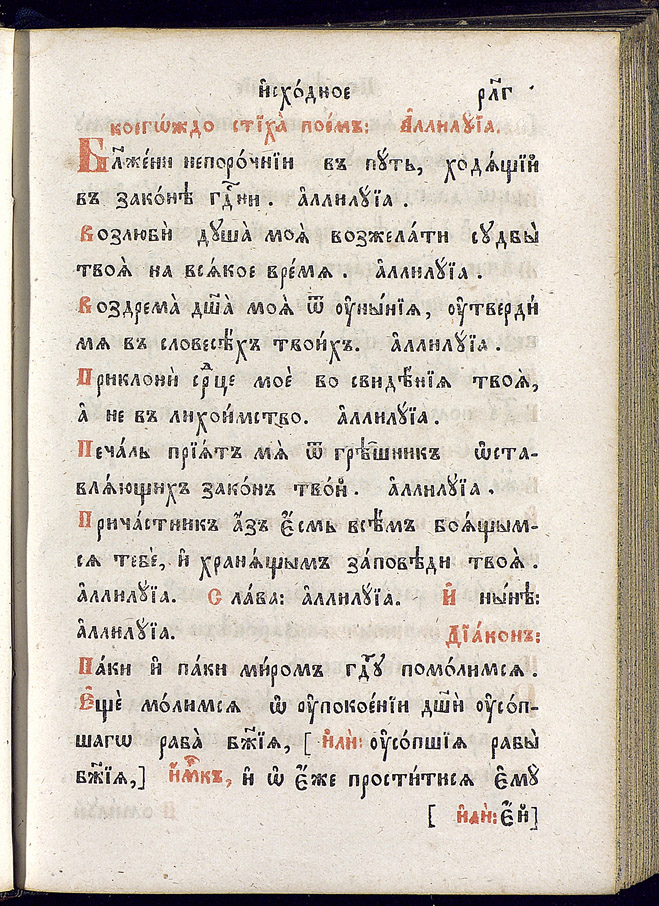 и҆схо́дное рл҃г
коегѡ́ждо стїха̀ пое́мъ: А҆ллилꙋ́їа.
Бл҃же́ни непоро́чнїи въ пꙋ́ть, ходѧ́щїи
въ зако́нѣ гдⷭ҇ни . а҆ллилꙋ́їа .
Возлюбѝ дꙋша̀ моѧ̀ возжела́ти сꙋдбы̀
твоѧ̀ на всѧ́кое вре́мѧ . а҆ллилꙋ́їа .
Воздрема̀ дш҃а̀ моѧ̀ ѿ оу҆ны́нїѧ, оу҆твердѝ
мѧ въ словесѣ́хъ твои́хъ. а҆ллилꙋ́їа .
Приклонѝ ср҃це моѐ во свидѣ́нїѧ твоѧ̀,
а҆ не въ лихои́мство. а҆ллилꙋ́їа .
Печа́ль прїѧ́тъ мѧ̀ ѿ грѣ́шникъ ѡ҆ста-
влѧ́ющихъ зако́нъ тво́й . а҆ллилꙋ́їа .
Прича́стникъ а҆́зъ є҆́смь всѣ̑мъ боѧ́щым-
сѧ тебѐ, и҆ хранѧ́щымъ за́повѣди твоѧ̀ .
а҆ллилꙋ́їа. Сла́ва: а҆ллилꙋ́їа. И҆ ны́нѣ:
а҆ллилꙋ́їа. Дїа́конъ:
Па́ки и҆ па́ки ми́ромъ гдⷭ҇ꙋ помо́лимсѧ .
Є҆щѐ мо́лимсѧ ѡ҆ оу҆покое́нїи дш҃ѝ оу҆со́п-
шагѡ раба̀ бж҃їѧ, [ и҆лѝ: оу҆со́пшїѧ рабы̀
бж҃їѧ,] и҆́м҃къ, и҆ ѡ҆ є҆́же прости́тисѧ є҆мꙋ̀
[ и҆лѝ: є҆́й]